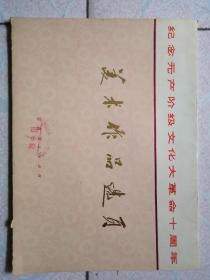 纪念无产阶级文化大革命十周年
美术作品选页